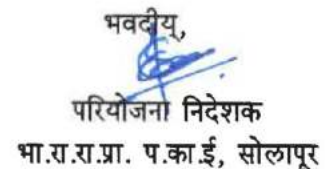 भवदीय,
परियोजना निदेशक
भा.रा.रा.प्रा. प.का.ई, सोलापूर